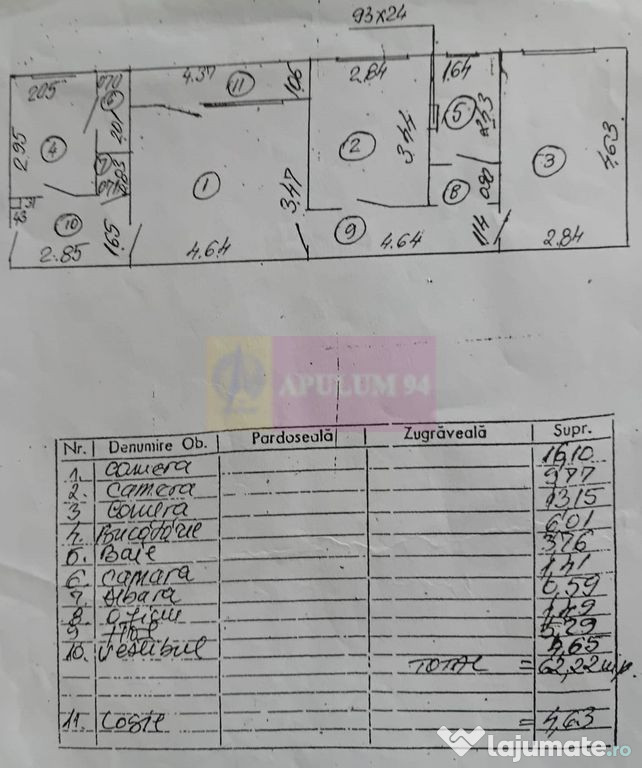 93x24
4.37
11
1,06
2,84
1,64
2,05
0,70
6
2,01
5
2,95
4
7
1
3,47
2
3,44
3
4,63
8
0,80
37
43
10
1,65
9
1,14
2.85
4.64
4.64
2.84
APULUM 94
Nr. Denumire Ob. Pardoseală Zugrăveală Supr.
1. camera 16,10
2. camera 9,77
3 camera 13,15
4. Bucatarie 6,01
5. Baie 3,76
6. camara 1,41
7. 0,59
8. 
9 Hol 5,29
10. vestibul 4,65
TOTAL = 62,22 m.p.
11. Logie = 4,63
lajumate.ro